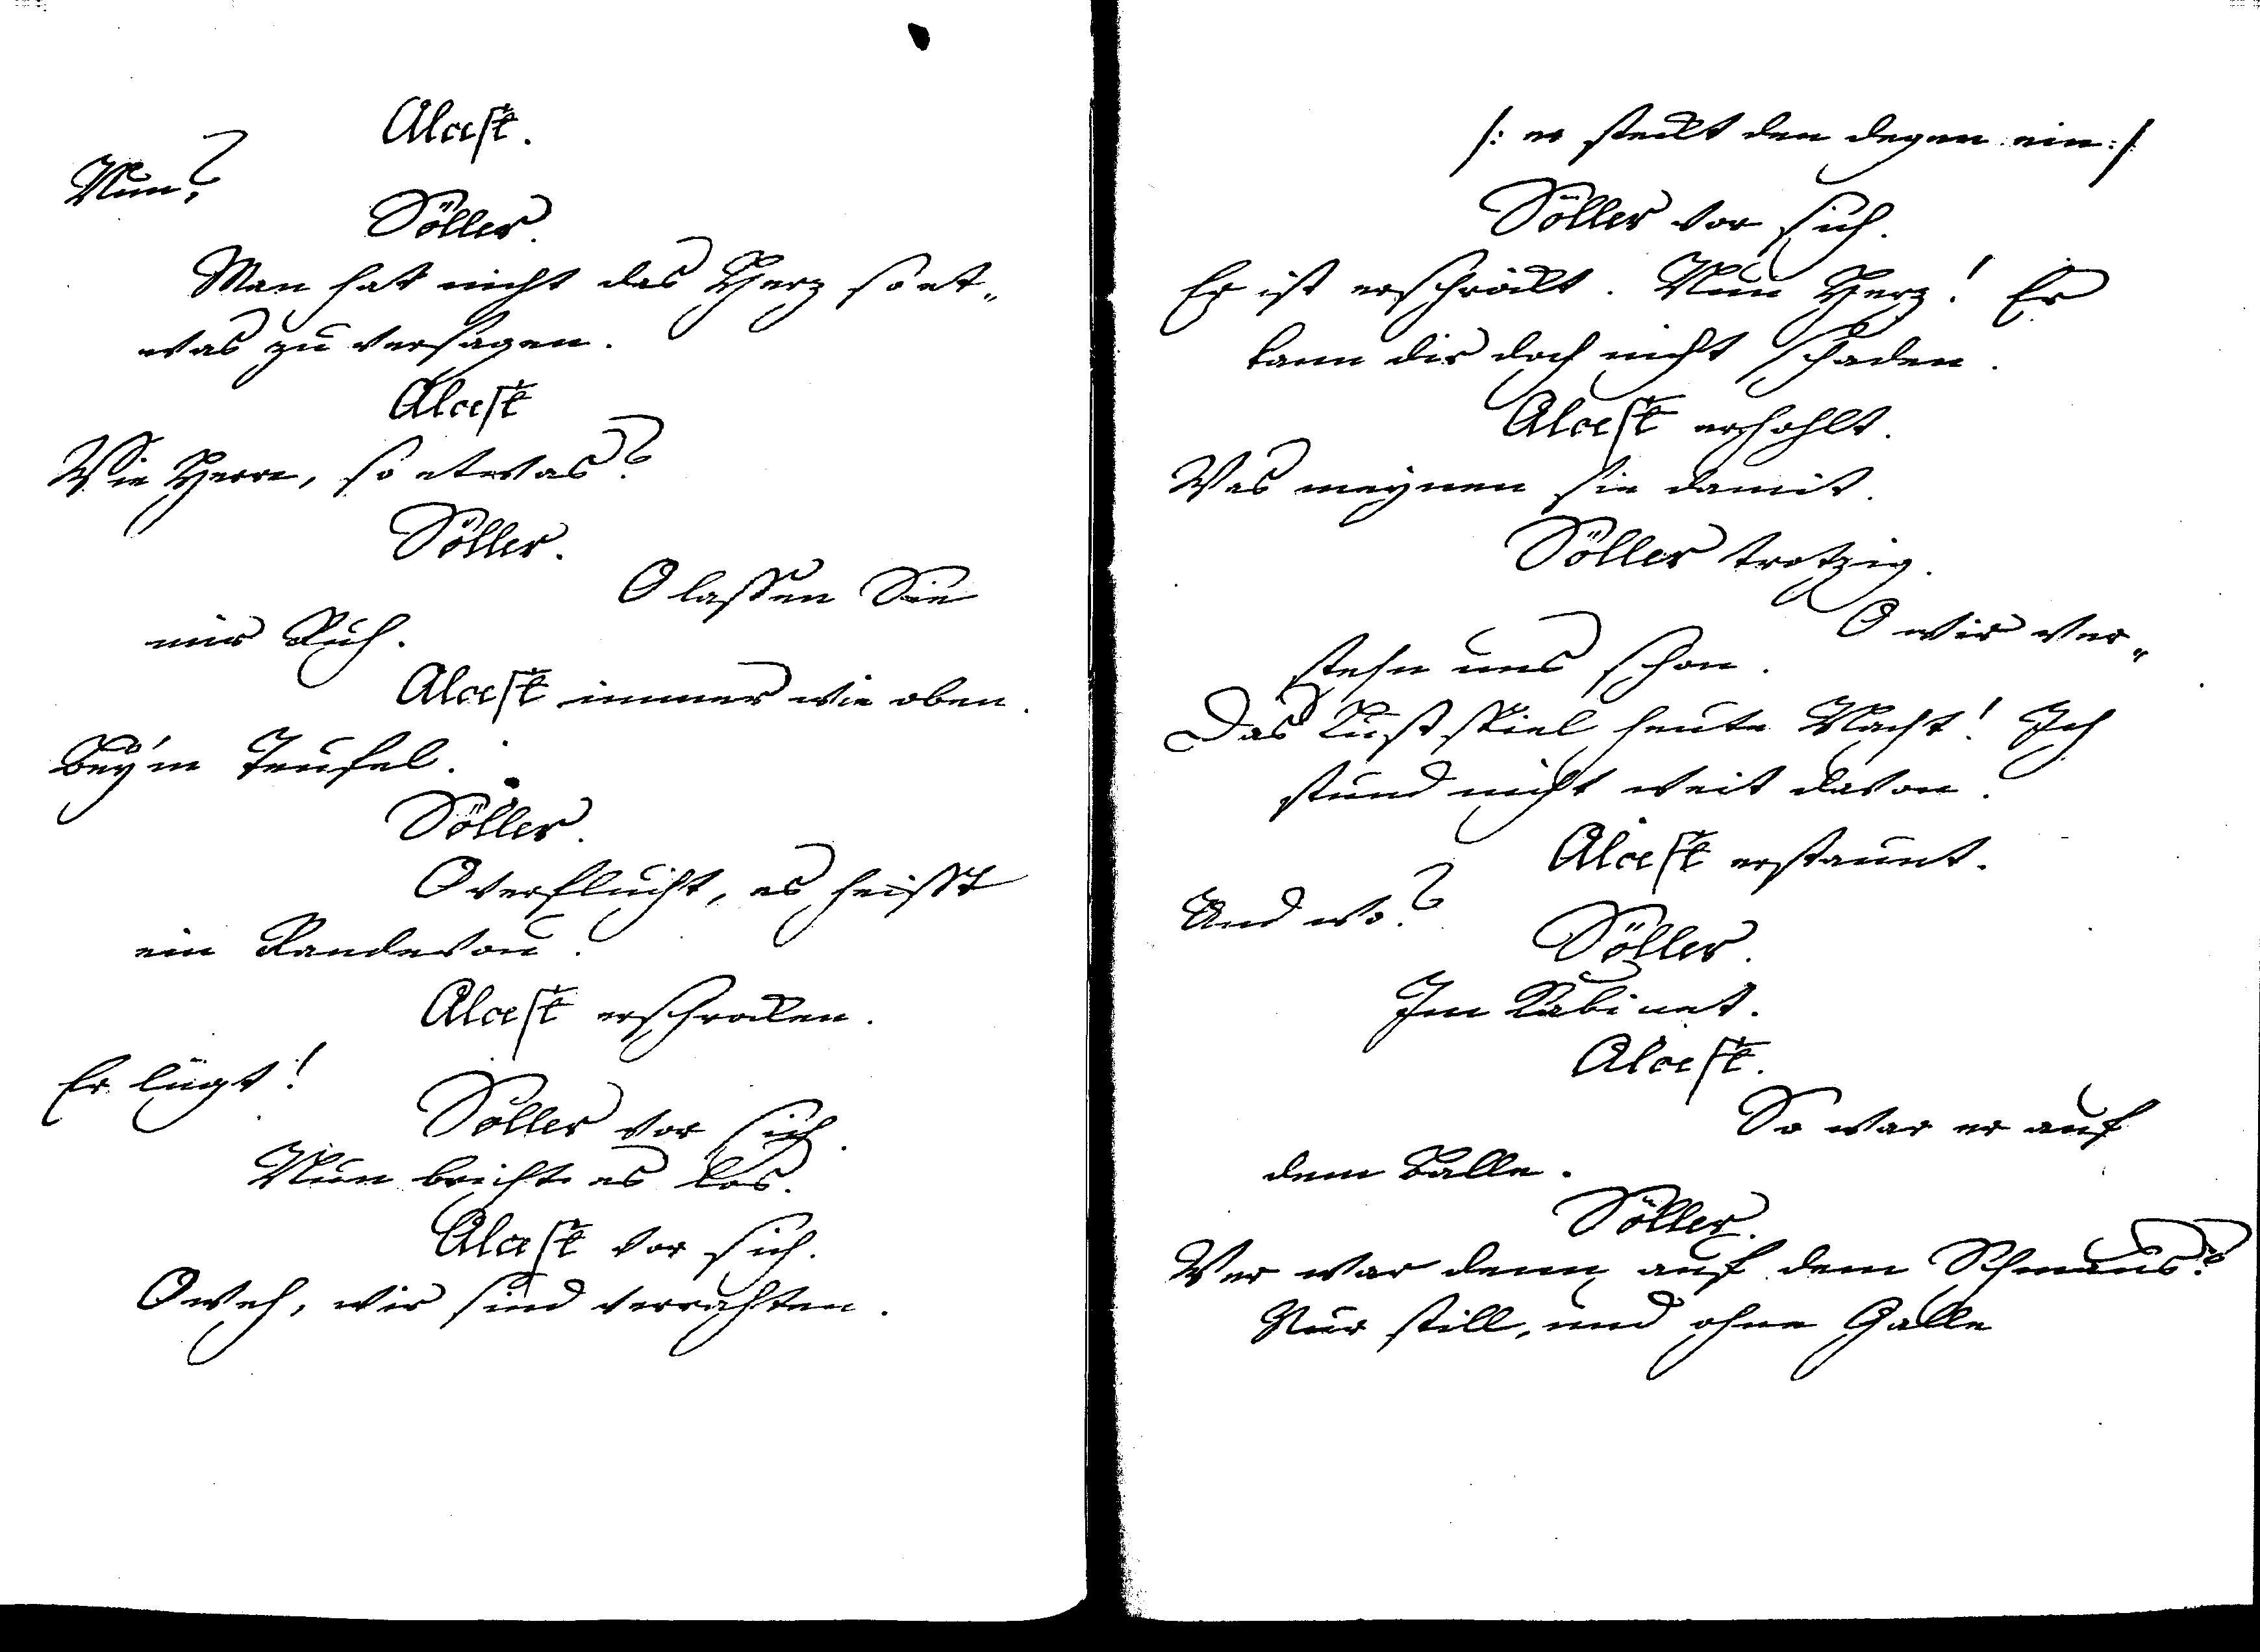 Alcest.
Nun?
Söller.
Man hat nicht das Herz so et„
was zu versagen.
Alcest
Wie Herre, so etwas?
Söller.
O lassen Sie
mir Ruh.
Alcest immer wie oben.
Bey'm Teufel.
Söller.
O verflucht, es heisst
ein Randevou.
Alcest erschrocken.
Er lügt!
Söller vor sich.
Nun bricht es los.
Alcest vor sich.
O weh, wir sind verrahten.
/: er steckt den degen ein :/
Söller vor sich.
Er ist erschröckt. Nun Herz! Er
kann dir doch nicht schaden.
Alcest erhohlt.
Was meynen sie damit.
Söller trotzig.
O wir ver„
stehn uns schon.
Das Lustspiel heute Nacht! Ich
stund nicht weit davon.
Alcest erstaunt.
Und wo?
Söller.
Im Kabinet.
Alcest.
So war er auf
dem Balle.
Söller.
Wer war denn auf dem Schmaus?
Nur still, und ohne Galle